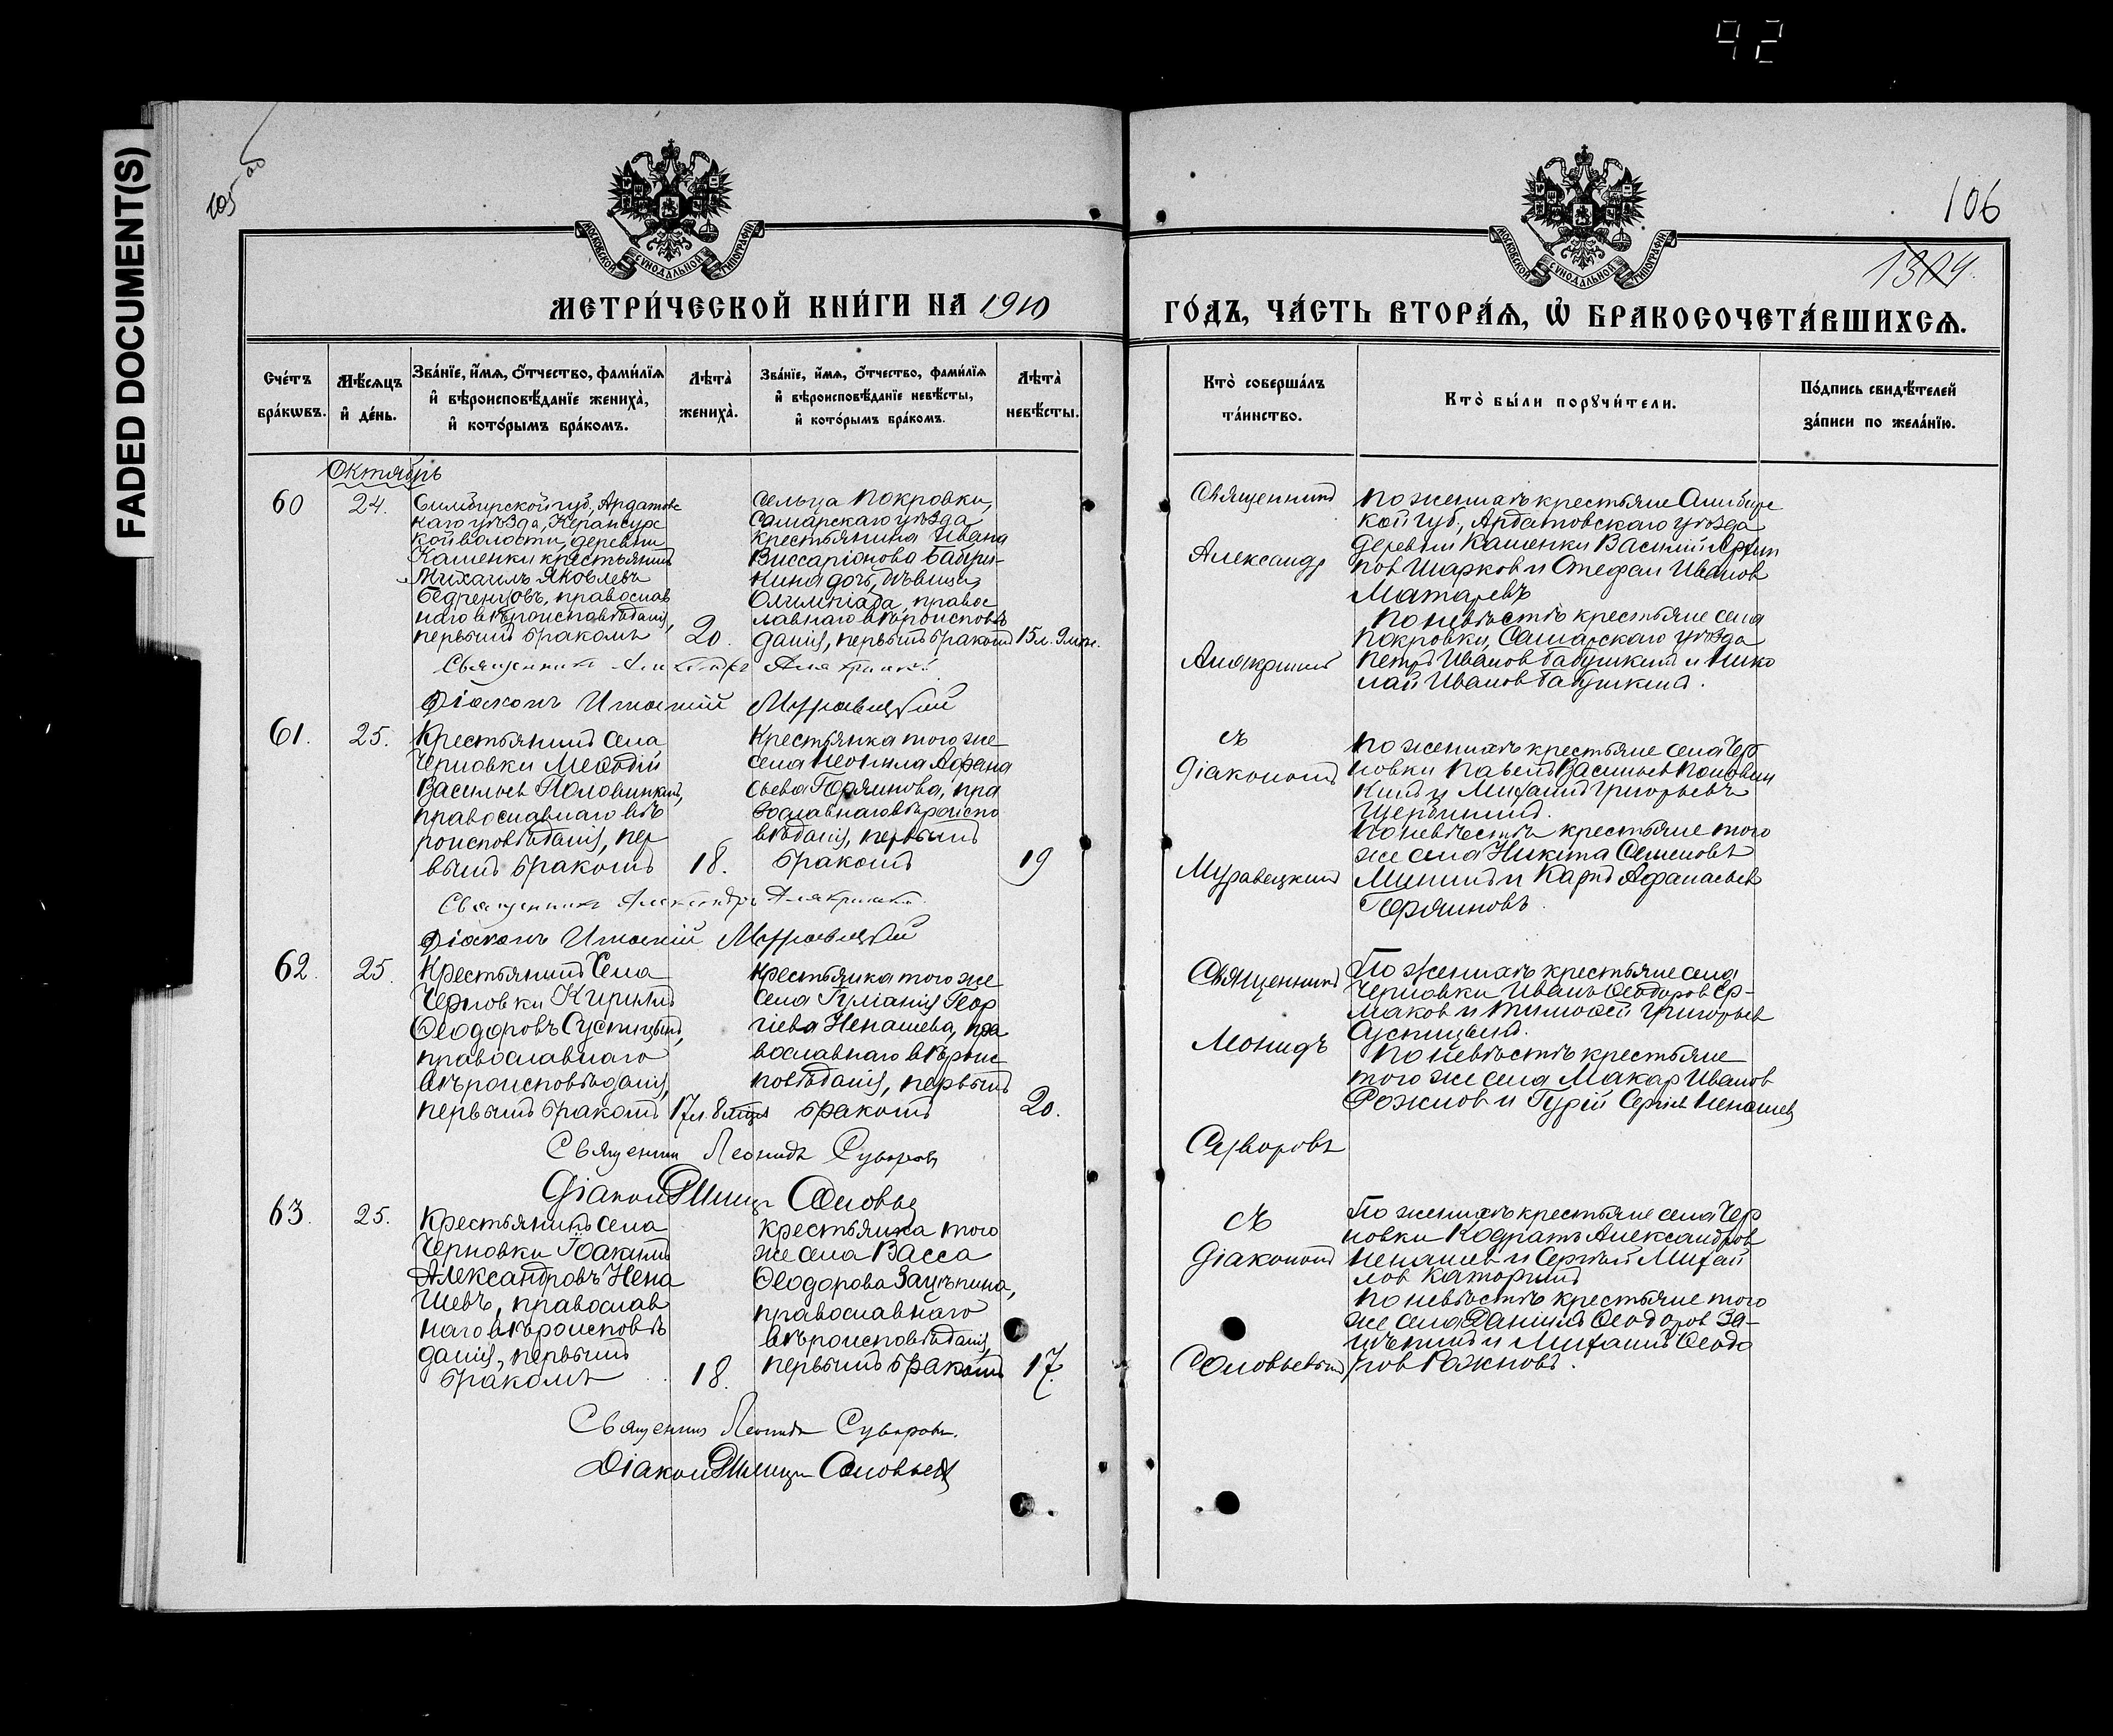 92
FADED DOCUMENT(S)
105 об
106
1304.
МОСКОВСКОЙ СѴНОДАЛЬНОЙ ТИПОГРАФІИ
МОСКОВСКОЙ СѴНОДАЛЬНОЙ ТИПОГРАФІИ
МЕТРИ́ЧЕСКОЙ КНИ́ГИ НА 1910
ГО́ДЪ, ЧА́СТЬ ВТОРА́Ѧ, Ѡ҆ БРАКОСОЧЕТА́ВШИХСѦ.
Сче́тъ
бра́кѡвъ.
Мѣ́сѧцъ
и҆ де́нь.
Зва́нїе, и҆́мѧ, ѻ҆́тчество, фами́лїѧ
и҆ вѣроисповѣ́данїе жениха̀,
и҆ кото́рымъ бра́комъ.
Лѣта̀
жениха̀.
Зва́нїе, и҆́мѧ, ѻ҆́тчество, фами́лїѧ
и҆ вѣроисповѣ́данїе невѣ́сты,
и҆ кото́рымъ бра́комъ.
Лѣта̀
невѣ́сты.
Кто̀ соверша́лъ
та́инство.
Кто̀ бы́ли порꙋчи́тели.
По́дпись свидѣ́телей
за́писи по жела́нїю.
Октябрь
60
24.
Симбирской губ., Ардатовс
каго уѣзда, Керансурс
кой волости, деревни
Каменки крестьянинъ
Михаилъ Яковлевъ
Бедренцовъ, православ
наго вѣроисповѣданія,
первымъ бракомъ
20.
сельца Покровки,
Самарскаго уѣзда
крестьянина Ивана
Виссаріонова Бабуш-
кина дочь, дѣвица
Олимпіада, правос
лавнаго вѣроисповѣ
данія, первымъ бракомъ
15 л. 9 мѣс.
Священникъ
Александръ
Алякринскій
По женихѣ крестьяне Симбирс
кой губ., Ардатовскаго уѣзда
деревни Каменки Василій Архип
повъ Шарковъ и Стефанъ Ивановъ
Матаревъ
По невѣстѣ крестьяне села
Покровки, Самарскаго уѣзда
Петръ Ивановъ Бабушкинъ и Нико
лай Ивановъ Бабушкинъ.
Священникъ Александръ Алякринскій
Діаконъ Игнатій Муравецкій
61.
25.
Крестьянинъ села
Черновки Меѳодій
Васильевъ Половинкинъ,
православнаго вѣ
роисповѣданія, пер
вымъ бракомъ
18.
Крестьянка того же
села Неонила Афана
сьева Горяинова, пра
вославнаго вѣроиспо
вѣданія, первымъ
бракомъ
19
съ
діакономъ
Муравецкимъ
По женихѣ крестьяне села Чер
новки Павелъ Васильевъ Половин
кинъ и Михаилъ Григорьевъ
Щербининъ.
По невѣстѣ крестьяне того
же села Никита Семеновъ
Мининъ и Карпъ Афанасьевъ
Горяиновъ.
Священникъ Александръ Алякринскій
Діаконъ Игнатій Муравецкій
62.
25
Крестьянинъ села
Черновки Кириллъ
Ѳеодоровъ Суспицынъ,
православнаго
вѣроисповѣданія,
первымъ бракомъ
17 л. 8 мцѣв
Крестьянка того же
села Гуліанія Геор
гіева Ненашева, пра
вославнаго вѣроис
повѣданія, первымъ
бракомъ
20.
Священникъ
Леонидъ
Суворовъ
По женихѣ крестьяне села
Черновки Иванъ Ѳеодоровъ Ер-
маковъ и Тимоѳей Григорьевъ
Суспицынъ.
По невѣстѣ крестьяне
того же села Макаръ Ивановъ
Рожновъ и Гурій Сергѣевъ Ненашев
Священникъ Леонидъ Суворовъ
Діаконъ Соловьев
63.
25.
Крестьянинъ села
Черновки Іоакимъ
Александровъ Нена
шевъ, православ
наго вѣроисповѣ
данія, первымъ
бракомъ
18.
Крестьянка того
же села Васса
Ѳеодорова Зацѣпина,
православнаго
вѣроисповѣданія,
первымъ бракомъ
17.
съ
діакономъ
Соловьевымъ
По женихѣ крестьяне села Чер
новки Кодратъ Александровъ
Ненашевъ и Сергѣй Михай
ловъ Каторгинъ
По невѣстѣ крестьяне того
же села Даніилъ Ѳеодоровъ За-
цѣпинъ и Михаилъ Ѳеодо
ровъ Рожновъ.
Священникъ Леонидъ Суворовъ.
Діаконъ Соловьев